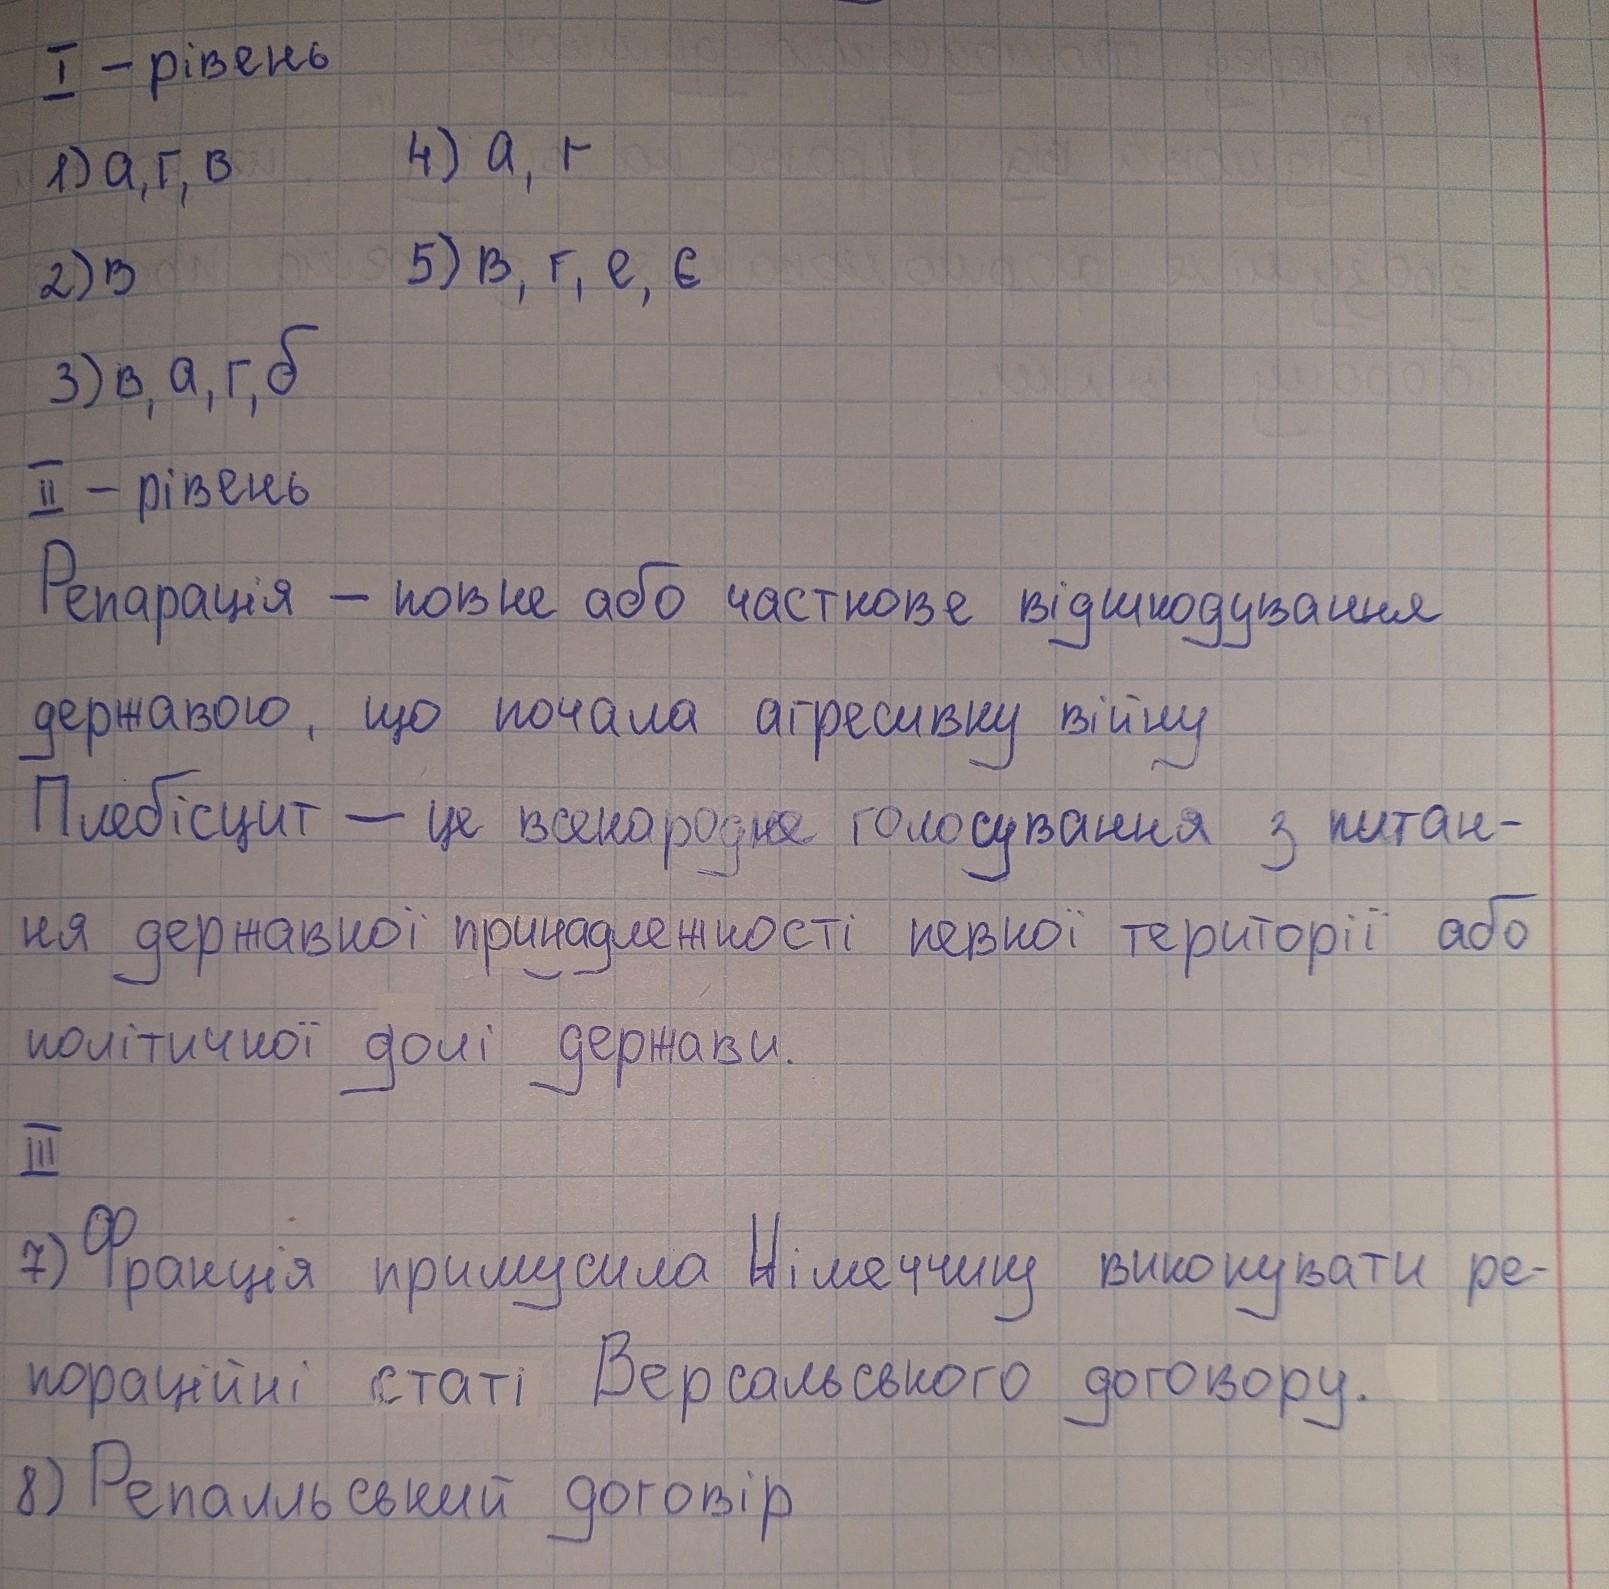 I – рівень
1) а, г, в 4) а, г
2) в 5) в, г, е, є
3) в, а, г, б
II – рівень
Репарація – повне або часткове відшкодування
державою, що почала агресивну війну
Плебісцит – це всенародне голосування з питан-
ня державної принадлежності певної території або
політичної долі держави.
III
7) Франція примусила Німеччину виконувати ре-
пораційні статі Версальського договору.
8) Репалльський договір